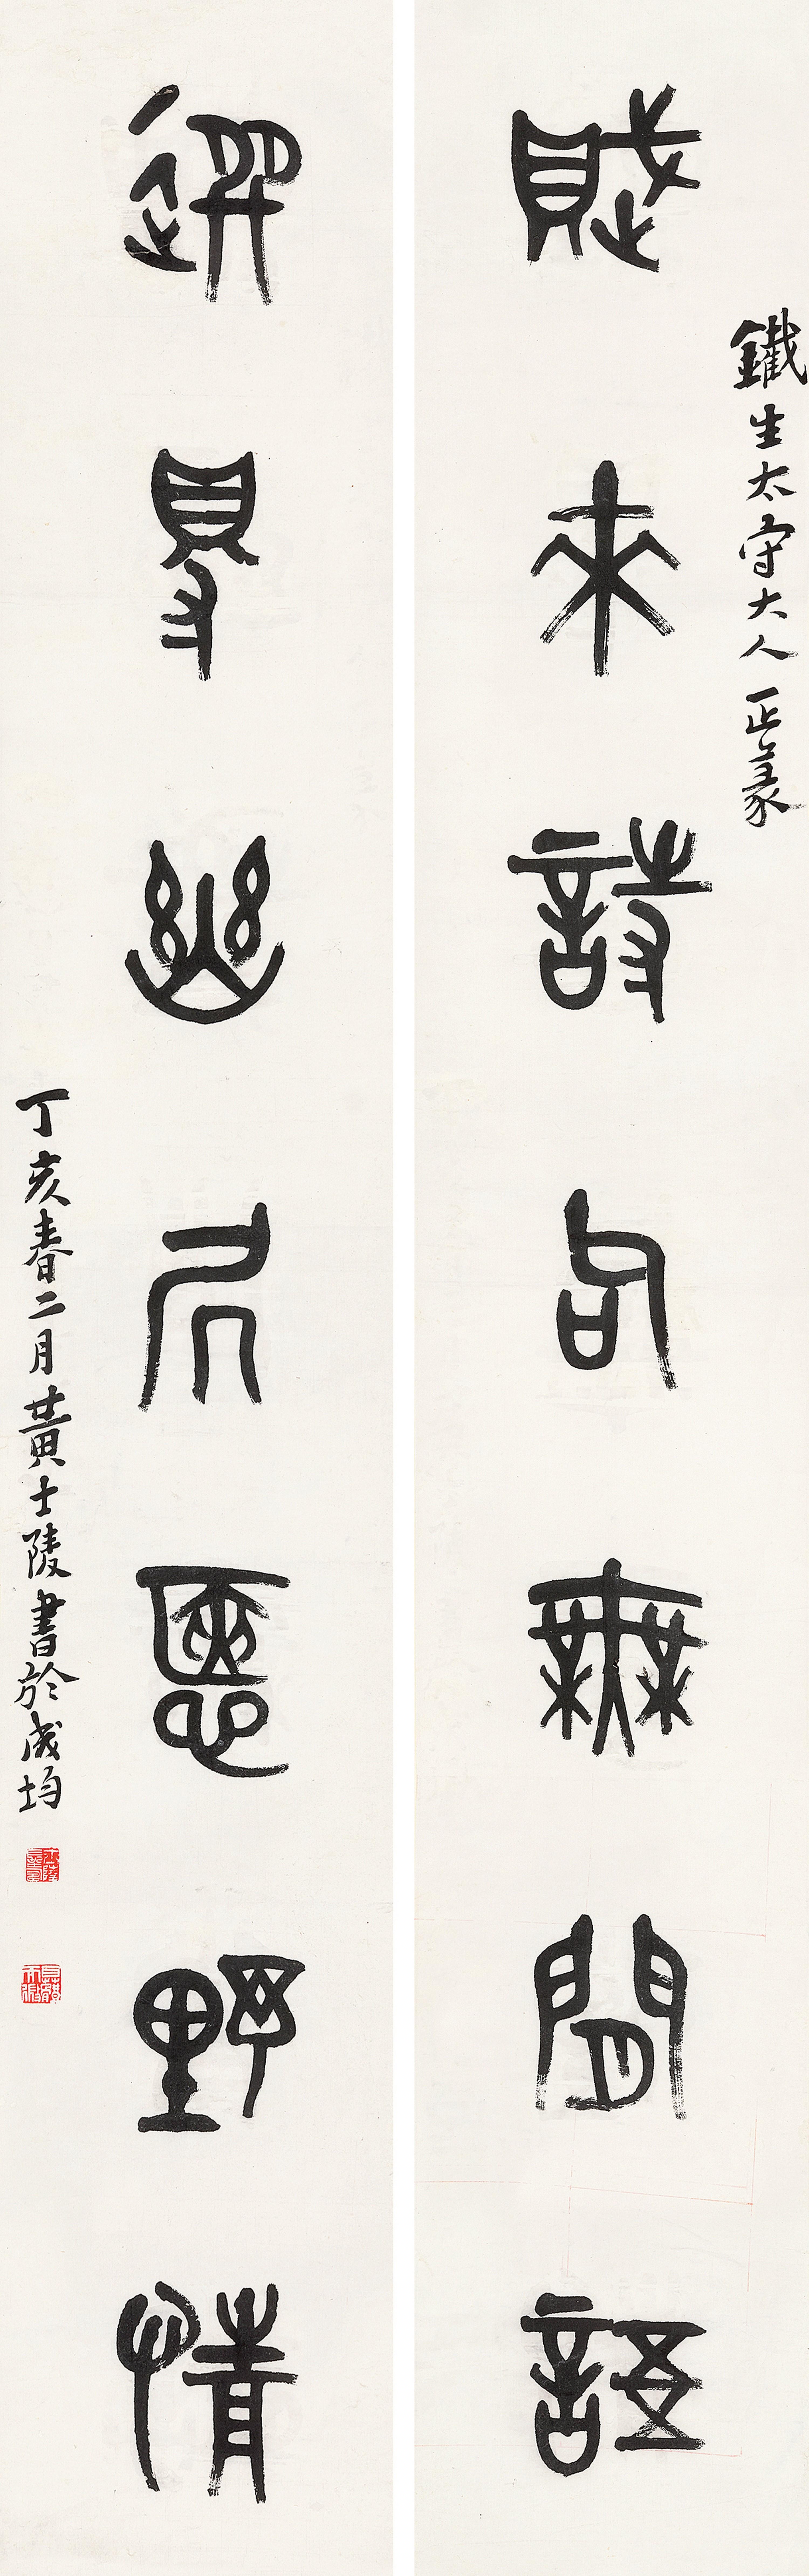 鐵生太守大人正篆
賦來詩句無閒語
選得幽居愜野情
丁亥春二月黃士陵書於成均